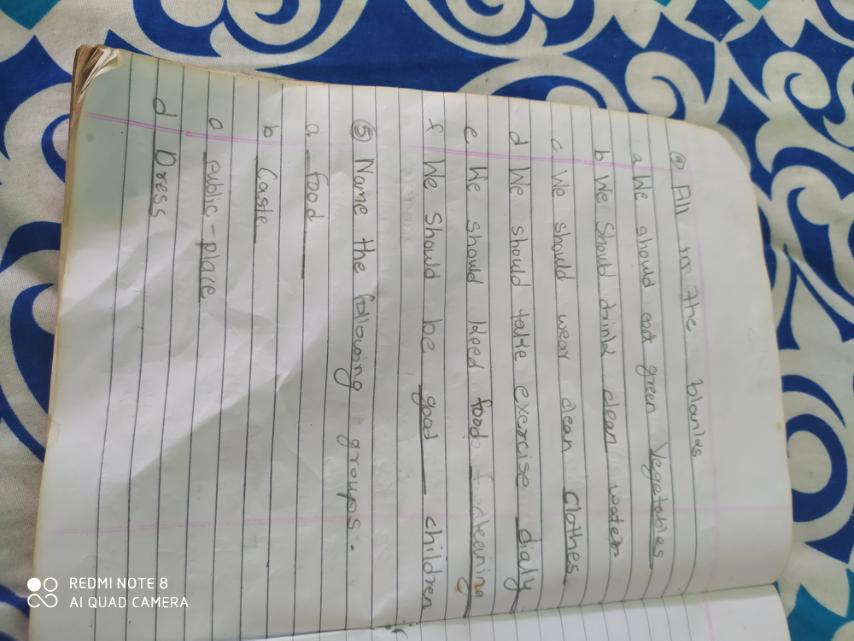 ④ Fill in the blanks
a We should eat green Vegetables
b We Should drink clean water
c We should wear clean Clothes
d We should take exercise dialy
e We should Need food cleaning
f We Should be good children
⑤ Name the following groups.
a food
b Caste
c Public-place
d Dress
REDMI NOTE 8
AI QUAD CAMERA